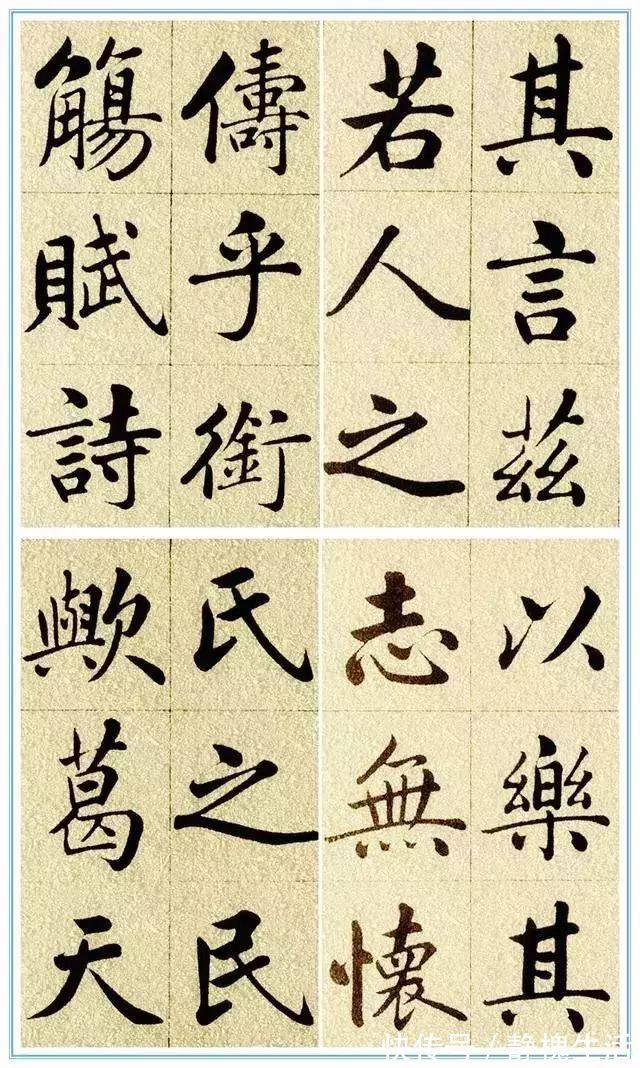 其言茲
若人之
儔乎銜
觴賦詩
以樂其
志無懷
氏之民
歟葛天
快传号/静槐生活